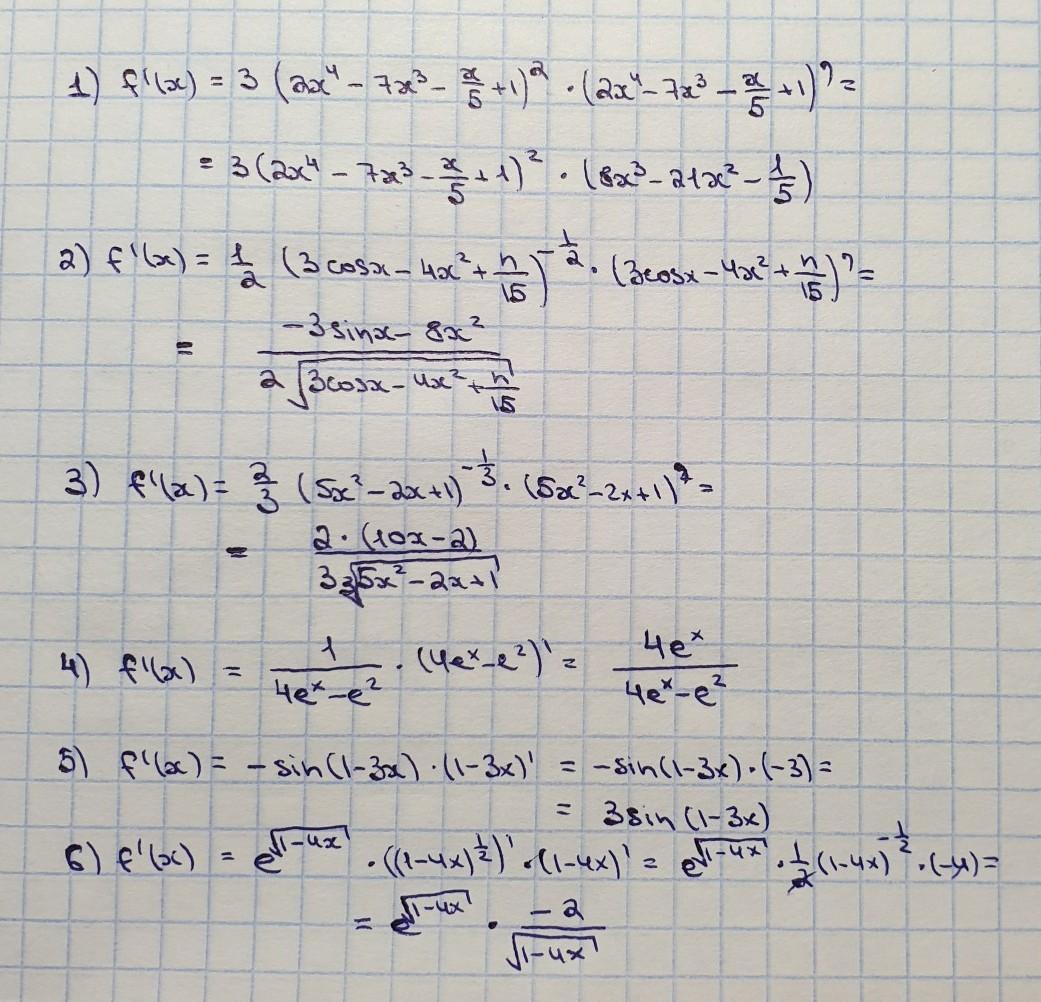 1) f'(x) = 3 (2x⁴ - 7x³ - x/5 + 1)² · (2x⁴ - 7x³ - x/5 + 1)' =
= 3 (2x⁴ - 7x³ - x/5 + 1)² · (8x³ - 21x² - 1/5)
2) f'(x) = 1/2 (3cosx - 4x² + π/15)^(-1/2) · (3cosx - 4x² + π/15)' =
= (-3sinx - 8x²)/(2√(3cosx - 4x² + π/15))
3) f'(x) = 2/3 (5x² - 2x + 1)^(-1/3) · (5x² - 2x + 1)' =
= (2 · (10x - 2))/(3∛(5x² - 2x + 1))
4) f'(x) = 1/(4eˣ - e²) · (4eˣ - e²)' = 4eˣ/(4eˣ - e²)
5) f'(x) = -sin(1-3x) · (1-3x)' = -sin(1-3x) · (-3) =
= 3sin(1-3x)
6) f'(x) = e^√(1-4x) · ((1-4x)^(1/2))' · (1-4x)' = e^√(1-4x) · 1/2 (1-4x)^(-1/2) · (-4) =
= e^√(1-4x) · -2/√(1-4x)